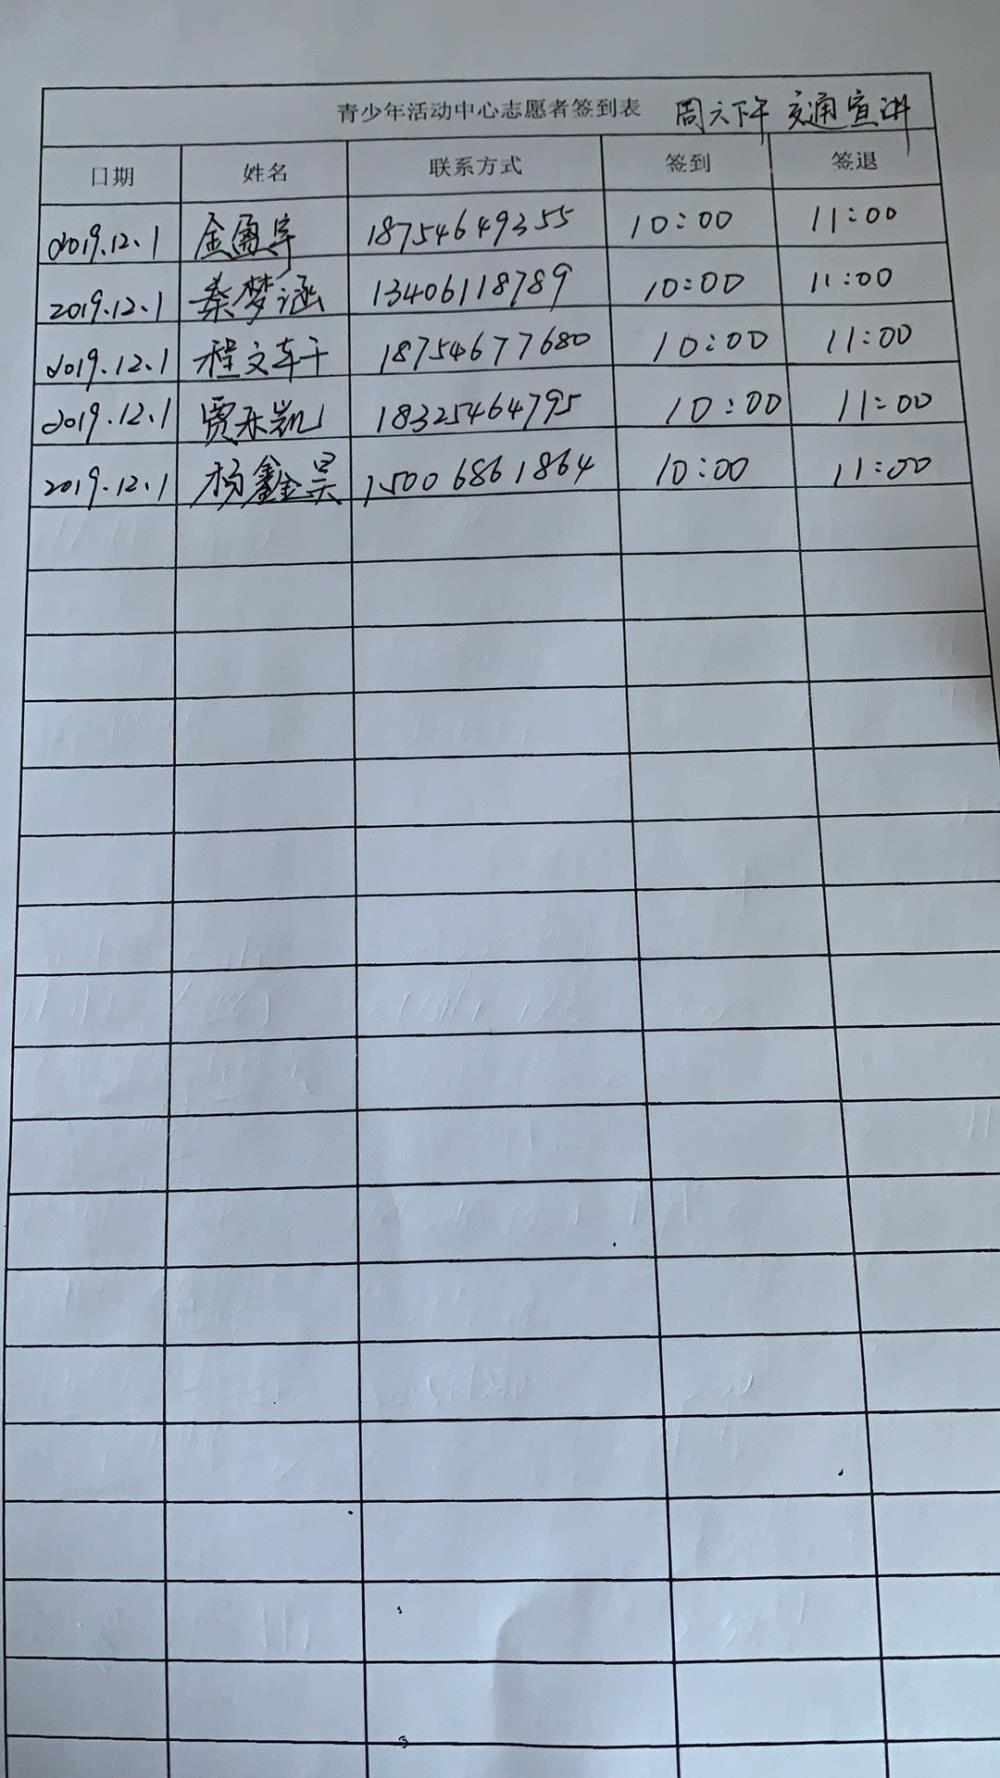 青少年活动中心志愿者签到表 周六下午 交通宣讲
日期 姓名 联系方式 签到 签退
2019.12.1 金圆宇 18754649355 10:00 11:00
2019.12.1 秦梦涵 13406118789 10:00 11:00
2019.12.1 程文 18754677680 10:00 11:00
2019.12.1 贾乐凯 18325464795 10:00 11:00
2019.12.1 杨鑫昊 15006861864 10:00 11:00